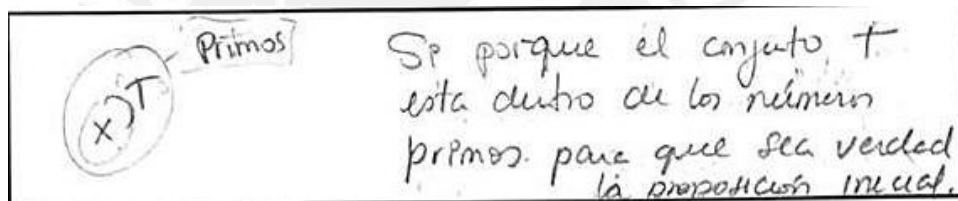 Primos
T
x
Si porque el conjuto T
esta dentro de los números
primos para que sea verdad
la proposición inicial.